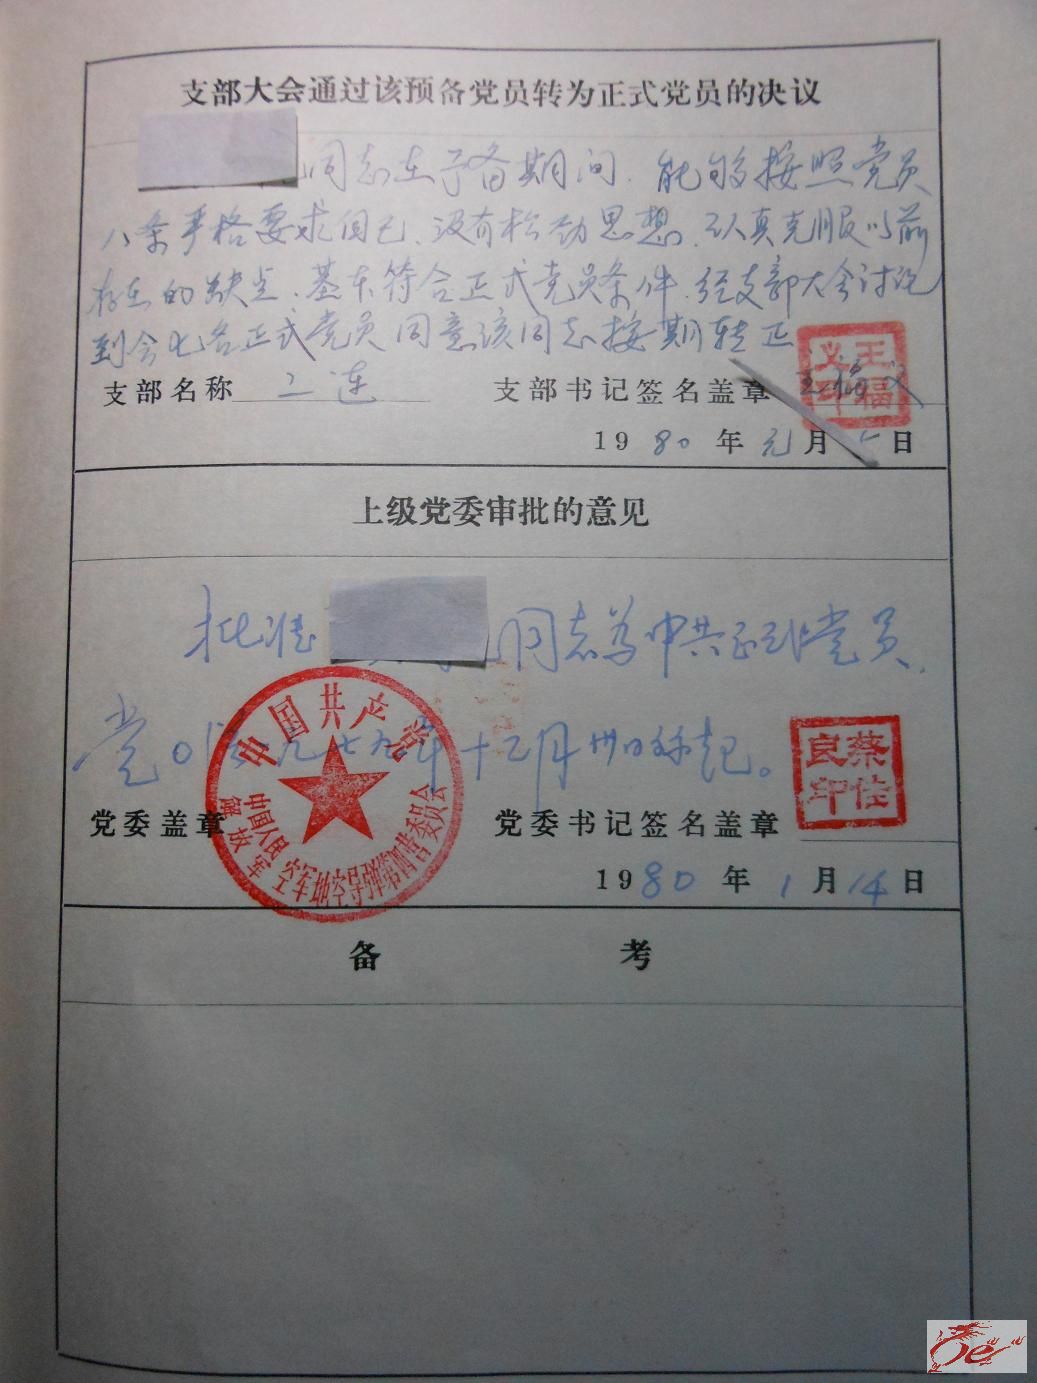 支部大会通过该预备党员转为正式党员的决议
同志在予备期间.能够按照党员
八条严格要求自己、没有松劲思想.认真克服以前
存在的缺点、基本符合正式党员条件.经支部大会讨论
到会七名正式党员同意该同志按期转正
支部名称 二连 支部书记签名盖章 王福义
王福义印
1980年元月 日
上级党委审批的意见
批准 同志为中共正式党员.
党 九七九年十二月卅日 起。
党委盖章 党委书记签名盖章
中国共产党
中国人民解放军空军地空导弹第四营委员会
蔡 良印
1980年1月14日
备考